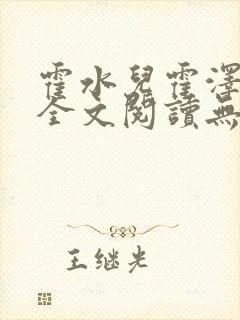 霍水兒霍澤
全文閱讀無
王继光